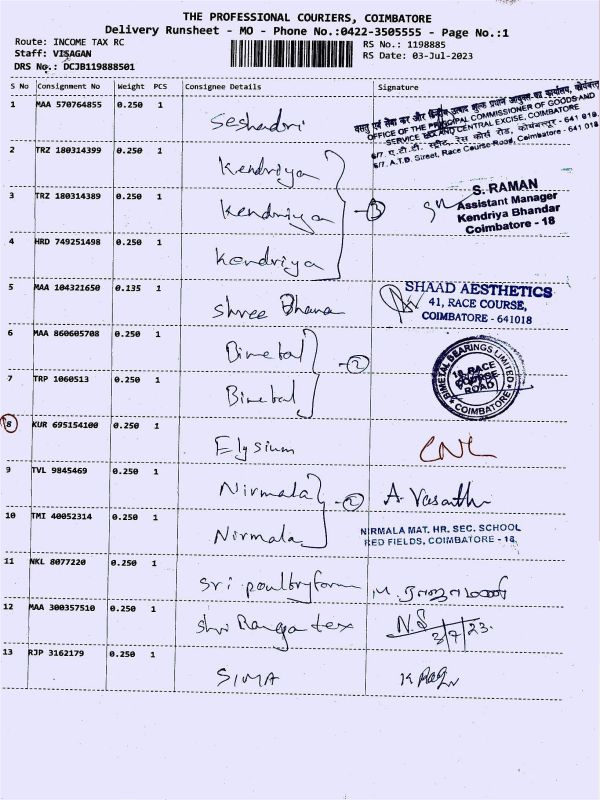 THE PROFESSIONAL COURIERS, COIMBATORE
Delivery Runsheet - MO - Phone No.:0422-3505555 - Page No.:1
Route: INCOME TAX RC
RS No.: 1198885
Staff: VISAGAN
RS Date: 03-Jul-2023
DRS No.: DCJB119888501
S No Consignment No Weight PCS Consignee Details Signature
1 MAA 570764855 0.250 1 Seshadri
OFFICE OF THE PRINCIPAL COMMISSIONER OF GOODS AND
SERVICE TAX AND CENTRAL EXCISE, COIMBATORE
6/7, A.T.D. Street, Race Course Road, Coimbatore - 641 018
2 TRZ 180314399 0.250 1 Kendriya
3 TRZ 180314389 0.250 1 Kendriya - 3
S. RAMAN
Assistant Manager
Kendriya Bhandar
Coimbatore - 18
4 HRD 749251498 0.250 1 Kendriya
5 MAA 104321650 0.135 1 Shree Bhana
SHAAD AESTHETICS
41, RACE COURSE,
COIMBATORE - 641018
6 MAA 860605708 0.250 1 Bimetal - 2
BIMETAL BEARINGS LIMITED
18, RACE
COURSE
ROAD
COIMBATORE
7 TRP 1060513 0.250 1 Bimetal
8 KUR 695154100 0.250 1 Elysium
9 TVL 9845469 0.250 1 Nirmala - 2 A. Vasanth
10 TMI 40052314 0.250 1 Nirmala
NIRMALA MAT. HR. SEC. SCHOOL
RED FIELDS, COIMBATORE - 18
11 NKL 8077220 0.250 1 Sri poultry form
12 MAA 300357510 0.250 1 Shri Ranga tex N.S 3/7/23.
13 RJP 3162179 0.250 1 SIMA